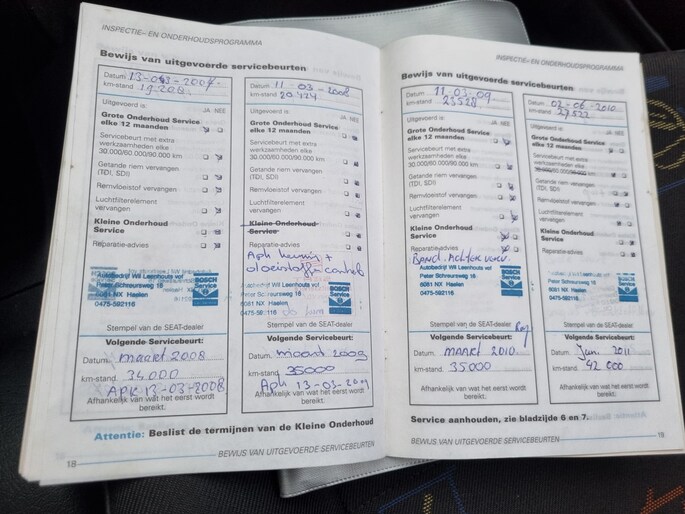 INSPECTIE- EN ONDERHOUDSPROGRAMMA
Bewijs van uitgevoerde servicebeurten
Datum 13-03-2007
km-stand 19.208
Uitgevoerd is: JA NEE
Grote Onderhoud Service
elke 12 maanden
Servicebeurt met extra
werkzaamheden elke
30.000/60.000/90.000 km
Getande riem vervangen
(TDI, SDI)
Remvloeistof vervangen
Luchtfilterelement
vervangen
Kleine Onderhoud
Service
Reparatie-advies
Autobedrijf Wil Leenhouts vof
Peter Schreursweg 16
6081 NX Haelen
0475-592116
BOSCH
Service
Stempel van de SEAT-dealer
Volgende Servicebeurt:
Datum maart 2008
km-stand 34.000
APK 13-03-2008
Afhankelijk van wat het eerst wordt
bereikt.
Datum 11-03-2008
km-stand 20.424
Uitgevoerd is: JA NEE
Grote Onderhoud Service
elke 12 maanden
Servicebeurt met extra
werkzaamheden elke
30.000/60.000/90.000 km
Getande riem vervangen
(TDI, SDI)
Remvloeistof vervangen
Luchtfilterelement
vervangen
Kleine Onderhoud
Service
Reparatie-advies
Apk keuring +
Autobedrijf Wil Leenhouts vof
Peter Schreursweg 16
6081 NX Haelen
0475-592116
BOSCH
Service
Stempel van de SEAT-dealer
Volgende Servicebeurt:
Datum maart 2009
km-stand 35000
Apk 13-03-2009
Afhankelijk van wat het eerst wordt
bereikt.
Attentie: Beslist de termijnen van de Kleine Onderhoud
18
BEWIJS VAN UITGEVOERDE SERVICEBEURTEN
INSPECTIE- EN ONDERHOUDSPROGRAMMA
Bewijs van uitgevoerde servicebeurten
Datum 11-03-09
km-stand 23528
Uitgevoerd is: JA NEE
Grote Onderhoud Service
elke 12 maanden
Servicebeurt met extra
werkzaamheden elke
30.000/60.000/90.000 km
Getande riem vervangen
(TDI, SDI)
Remvloeistof vervangen
Luchtfilterelement
vervangen
Kleine Onderhoud
Service
Reparatie-advies
BAND. ACHTER VERV.
Autobedrijf Wil Leenhouts vof
Peter Schreursweg 16
6081 NX Haelen
0475-592116
BOSCH
Service
Stempel van de SEAT-dealer
Volgende Servicebeurt:
Datum MAART 2010
km-stand 35000
Afhankelijk van wat het eerst wordt
bereikt.
Datum 02-06-2010
km-stand 27.522
Uitgevoerd is: JA NEE
Grote Onderhoud Service
elke 12 maanden
Servicebeurt met extra
werkzaamheden elke
30.000/60.000/90.000 km
Getande riem vervangen
(TDI, SDI)
Remvloeistof vervangen
Luchtfilterelement
vervangen
Kleine Onderhoud
Service
Reparatie-advies
Autobedrijf Wil Leenhouts vof
Peter Schreursweg 16
6081 NX Haelen
0475-592116
BOSCH
Service
Stempel van de SEAT-dealer
Volgende Servicebeurt:
Datum Jun. 2011
km-stand 42 000
Afhankelijk van wat het eerst wordt
bereikt.
Service aanhouden, zie bladzijde 6 en 7.
BEWIJS VAN UITGEVOERDE SERVICEBEURTEN
19